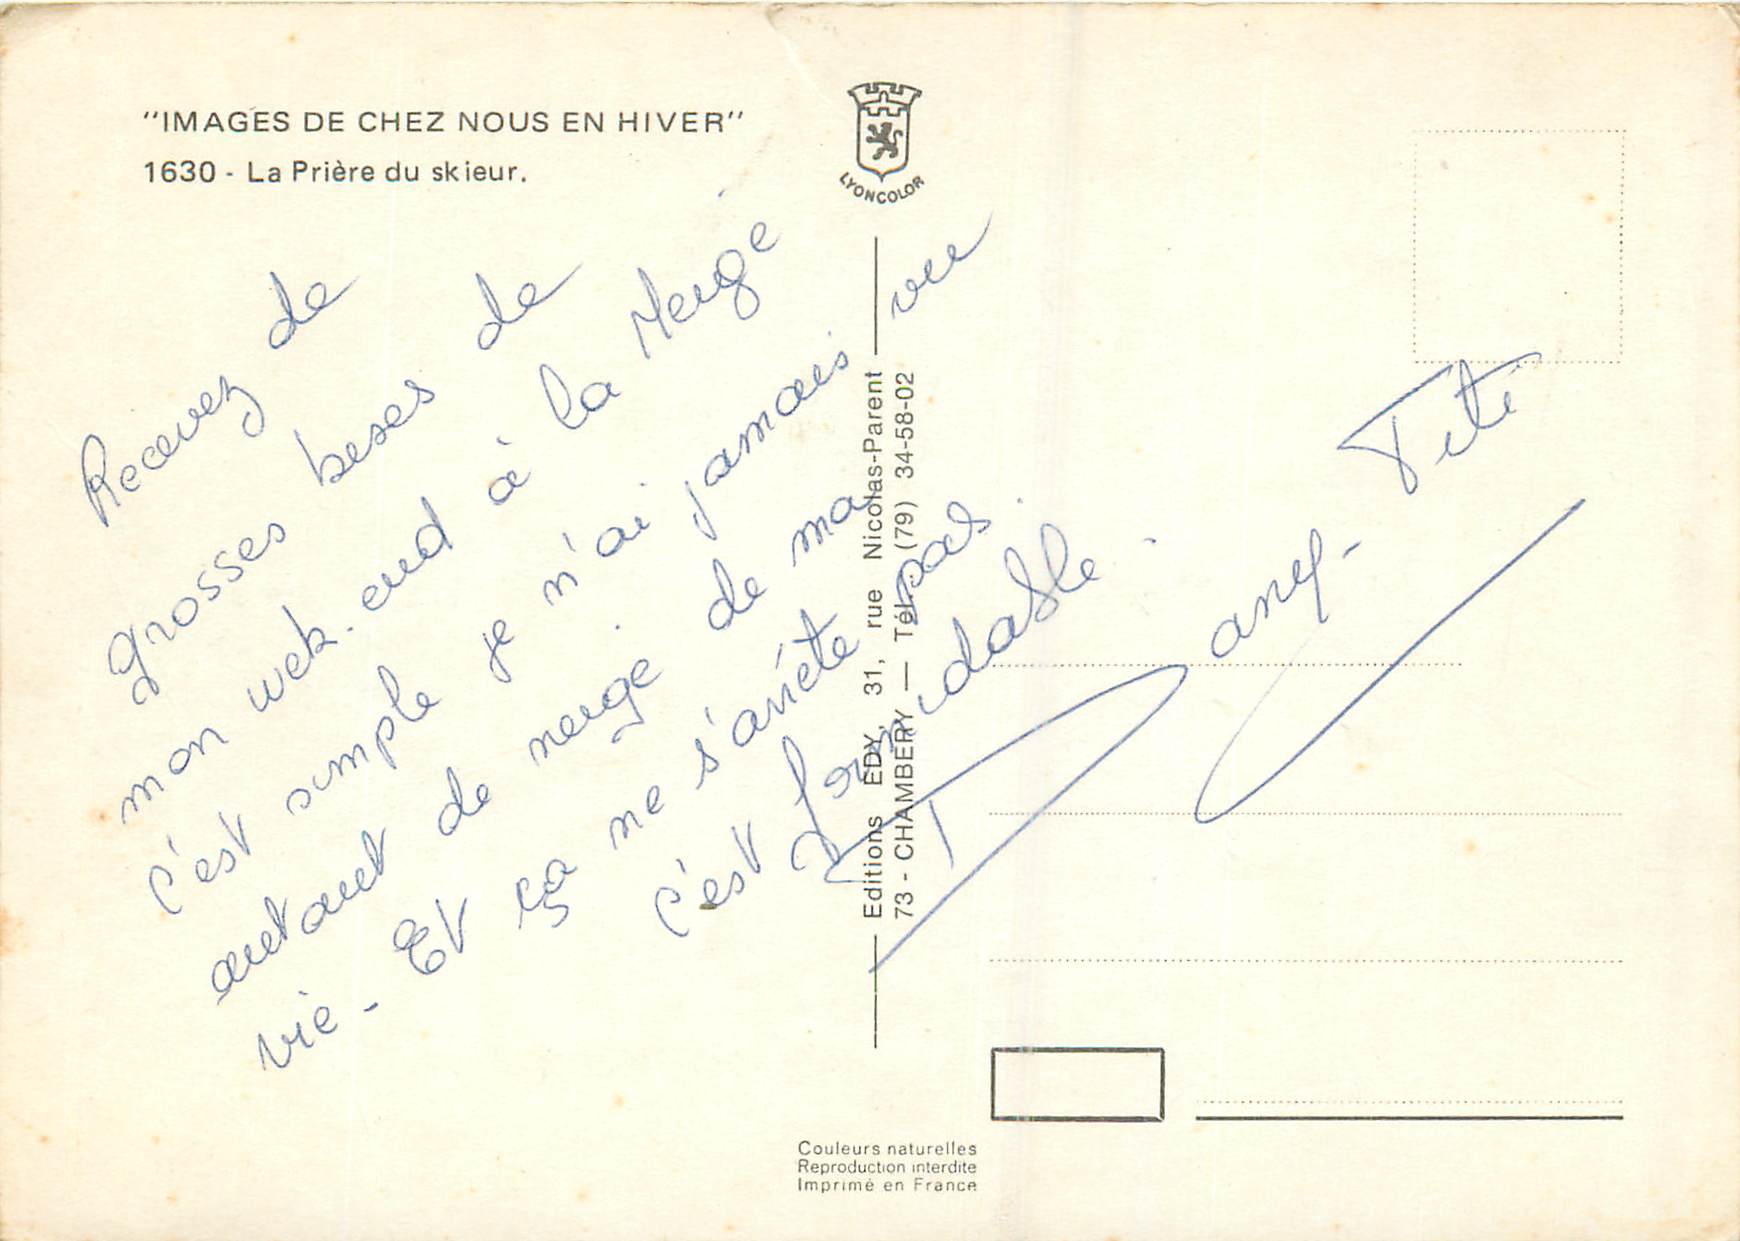 "IMAGES DE CHEZ NOUS EN HIVER"
1630 - La Prière du skieur.
LYONCOLOR
Recevez de
grosses bises de
mon wek-end à la Neige
c'est simple je n'ai jamais vu
autant de neige de ma
vie - Et ça ne s'arrête pas.
c'est formidable.
Dany - Titi
Editions EDY, 31, rue Nicolas-Parent
73 - CHAMBERY — Tél. (79) 34-58-02
Couleurs naturelles
Reproduction interdite
Imprimé en France